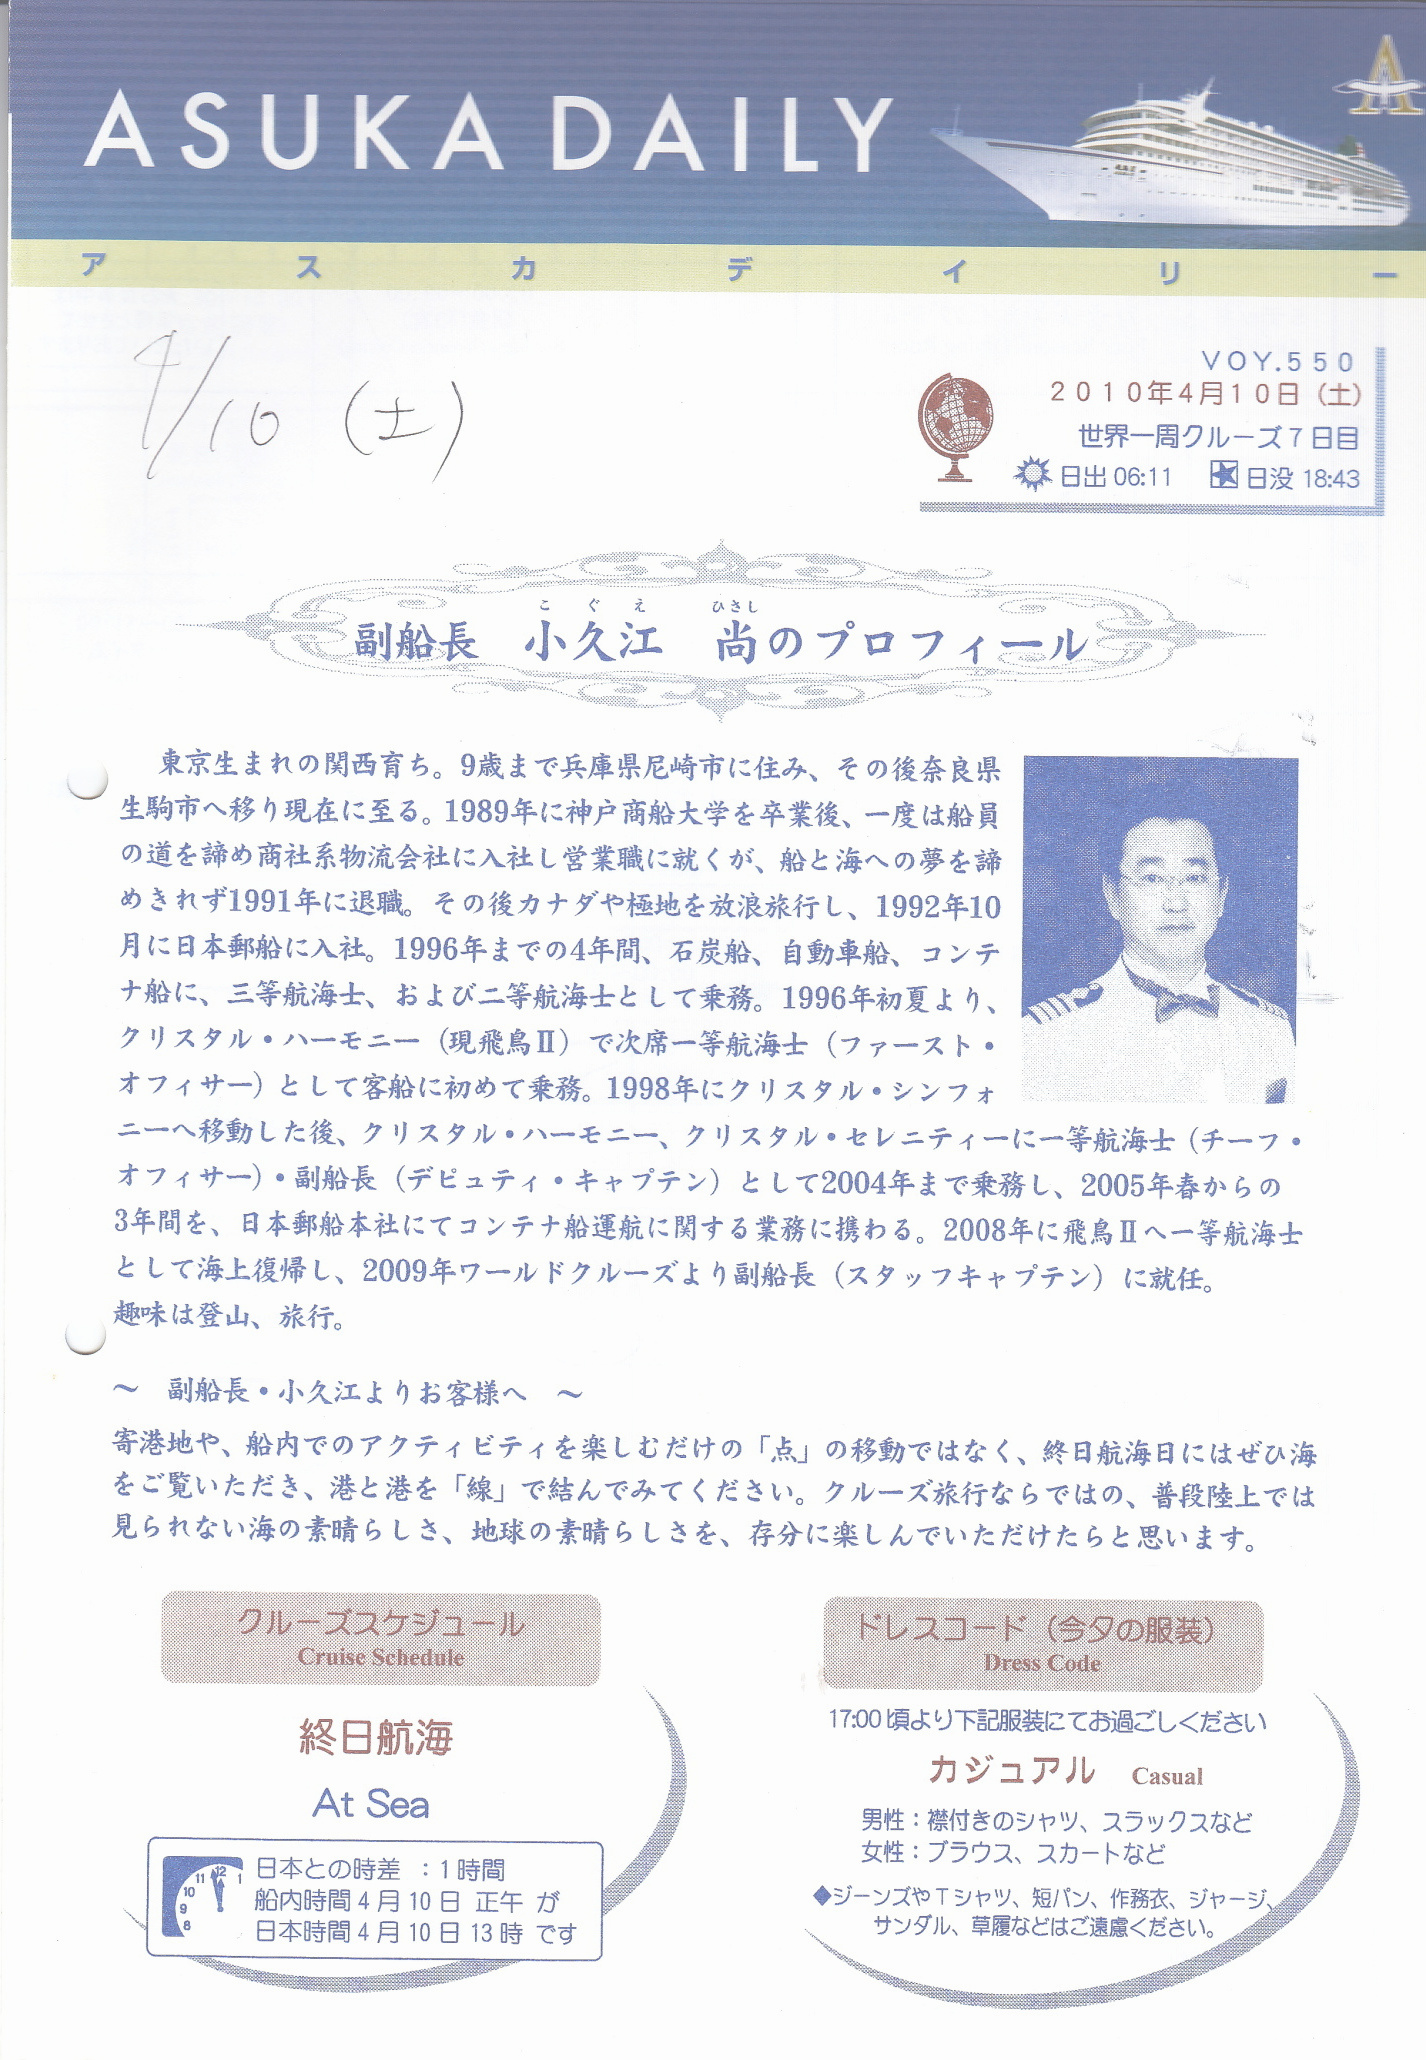 ASUKA DAILY
アスカデイリー
4/10 (土)
VOY.550
2010年4月10日（土）
世界一周クルーズ7日目
日出 06:11 日没 18:43
こぐえ ひさし
副船長 小久江 尚のプロフィール
東京生まれの関西育ち。9歳まで兵庫県尼崎市に住み、その後奈良県
生駒市へ移り現在に至る。1989年に神戸商船大学を卒業後、一度は船員
の道を諦め商社系物流会社に入社し営業職に就くが、船と海への夢を諦
めきれず1991年に退職。その後カナダや極地を放浪旅行し、1992年10
月に日本郵船に入社。1996年までの4年間、石炭船、自動車船、コンテ
ナ船に、三等航海士、および二等航海士として乗務。1996年初夏より、
クリスタル・ハーモニー（現飛鳥Ⅱ）で次席一等航海士（ファースト・
オフィサー）として客船に初めて乗務。1998年にクリスタル・シンフォ
ニーへ移動した後、クリスタル・ハーモニー、クリスタル・セレニティーに一等航海士（チーフ・
オフィサー）・副船長（デピュティ・キャプテン）として2004年まで乗務し、2005年春からの
3年間を、日本郵船本社にてコンテナ船運航に関する業務に携わる。2008年に飛鳥Ⅱへ一等航海士
として海上復帰し、2009年ワールドクルーズより副船長（スタッフキャプテン）に就任。
趣味は登山、旅行。
～ 副船長・小久江よりお客様へ ～
寄港地や、船内でのアクティビティを楽しむだけの「点」の移動ではなく、終日航海日にはぜひ海
をご覧いただき、港と港を「線」で結んでみてください。クルーズ旅行ならではの、普段陸上では
見られない海の素晴らしさ、地球の素晴らしさを、存分に楽しんでいただけたらと思います。
クルーズスケジュール
Cruise Schedule
終日航海
At Sea
11 12 1
10
9
8
日本との時差 ：1時間
船内時間4月10日 正午 が
日本時間4月10日13時 です
ドレスコード（今夕の服装）
Dress Code
17:00頃より下記服装にてお過ごしください
カジュアル Casual
男性：襟付きのシャツ、スラックスなど
女性：ブラウス、スカートなど
◆ジーンズやTシャツ、短パン、作務衣、ジャージ、
サンダル、草履などはご遠慮ください。